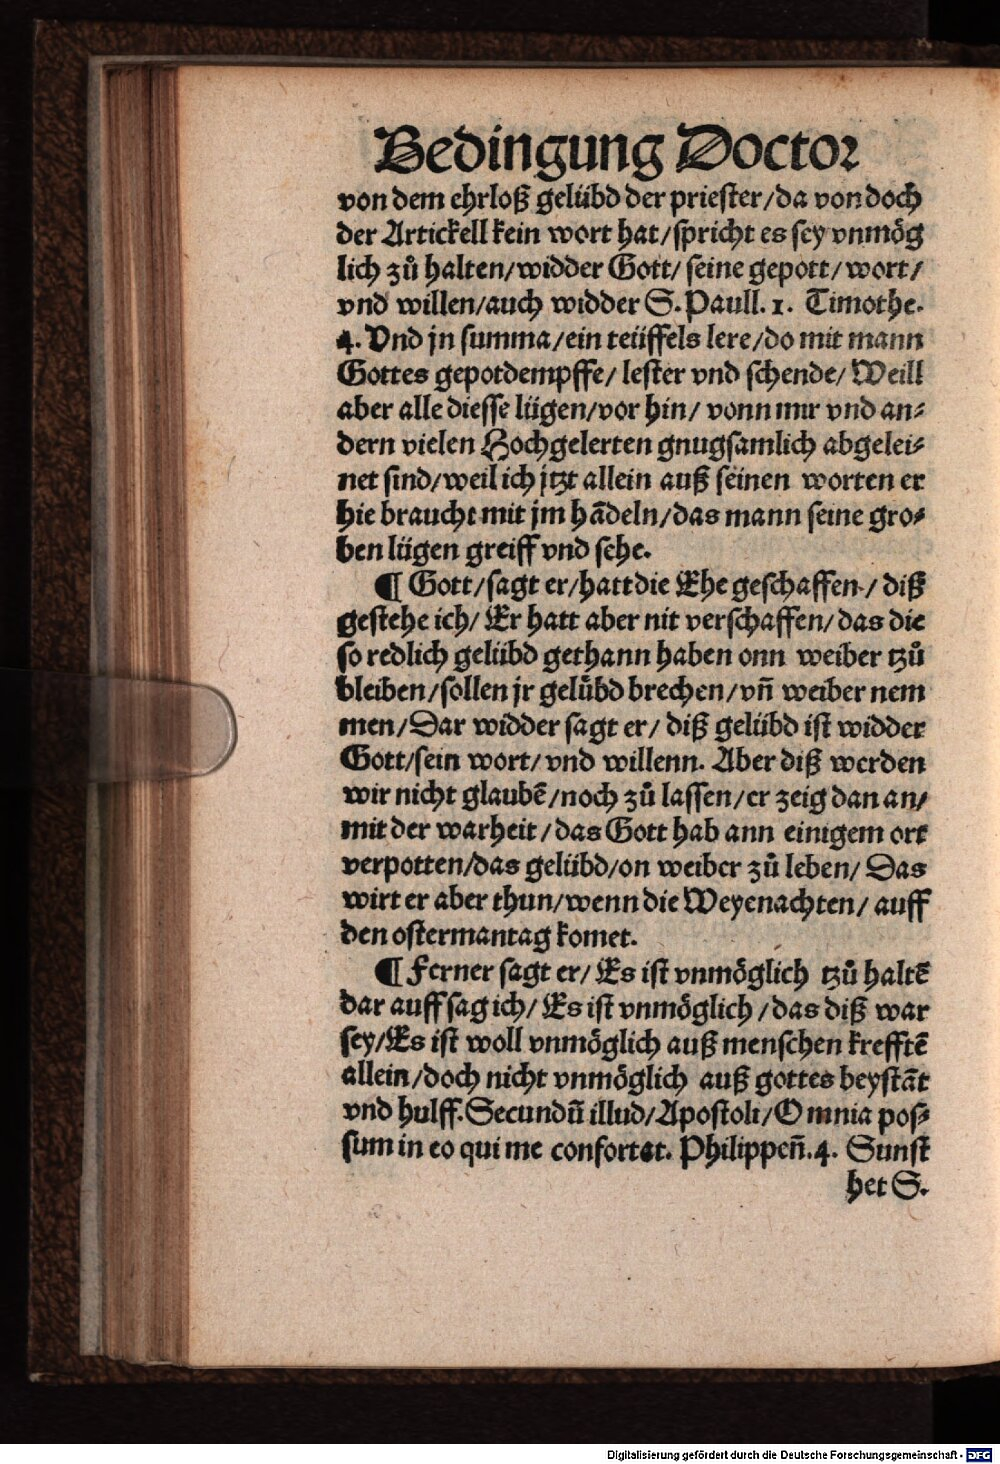 Bedingung Doctor
von dem ehrloß gelübd der priester/da von doch
der Artickell kein wort hat/spricht es sey vnmög
lich zů halten/widder Gott/ seine gepott/wort/
vnd willen/auch widder S.Paull. 1. Timothe.
4. Vnd jn summa/ein teüffels lere/do mit mann
Gottes gepotdempffe/ lester vnd schende/ Weill
aber alle diesse lügen/vor hin/ vonn mir vnd an⸗
dern vielen Hochgelerten gnugsamlich abgelei⸗
net sind/weil ich jtzt allein auß seinen worten er
hie braucht mit jm hãdeln/das mann seine gro⸗
ben lügen greiff vnd sehe.
¶ Gott/sagt er/hatt die Ehe geschaffen/ diß
gestehe ich/ Er hatt aber nit verschaffen/das die
so redlich gelübd gethann haben onn weiber tzů
bleiben/sollen jr gelübd brechen/vñ weiber nem
men/Dar widder sagt er/ diß gelübd ist widder
Gott/sein wort/ vnd willenn. Aber diß werden
wir nicht glaubẽ/noch zů lassen/er zeig dan an/
mit der warheit/das Gott hab ann einigem ort
verpotten/das gelübd/on weiber zů leben/ Das
wirt er aber thun/wenn die Weyenachten/ auff
den ostermantag komet.
¶ Ferner sagt er/ Es ist vnmöglich tzů haltẽ
dar auff sag ich/ Es ist vnmöglich/das diß war
sey/Es ist woll vnmöglich auß menschen krefftẽ
allein/doch nicht vnmöglich auß gottes beystãt
vnd hulff.Secundũ illud/Apostoli/Omnia pos⸗
sum in eo qui me confortat. Philippeñ.4. Sunst
het S.
Digitalisierung gefördert durch die Deutsche Forschungsgemeinschaft - DFG